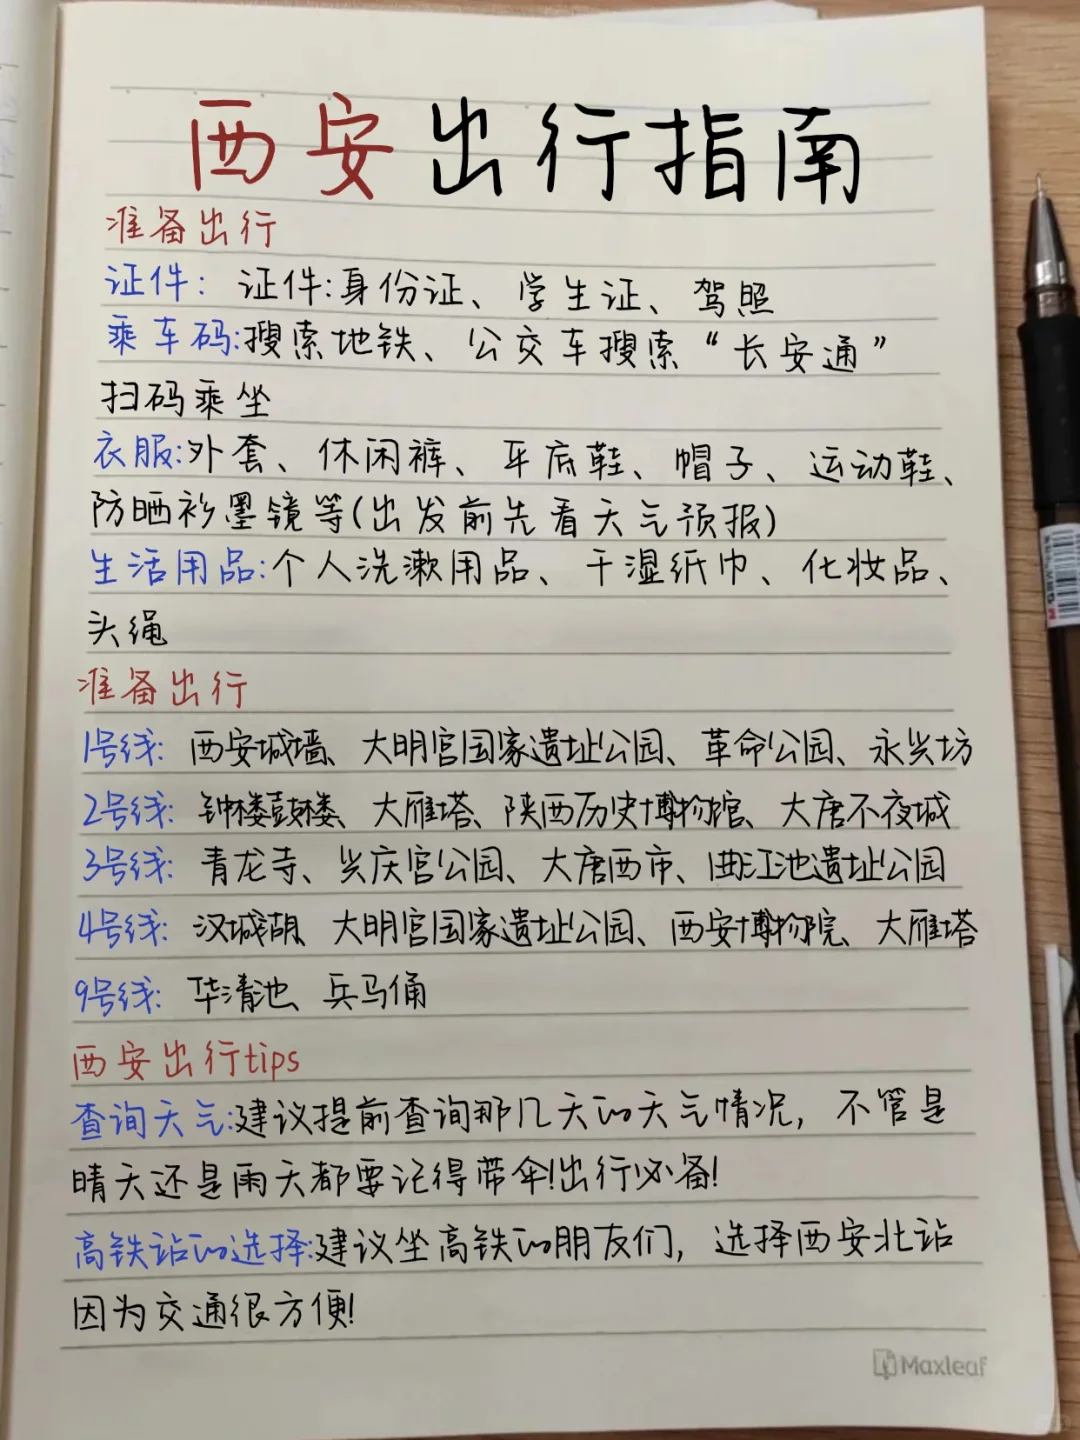 西安出行指南
准备出行
证件: 证件:身份证、学生证、驾照
乘车码:搜索地铁、公交车搜索“长安通”
扫码乘坐
衣服:外套、休闲裤、平底鞋、帽子、运动鞋、
防晒衫墨镜等(出发前先看天气预报)
生活用品:个人洗漱用品、干湿纸巾、化妆品、
头绳
准备出行
1号线: 西安城墙、大明宫国家遗址公园、革命公园、永兴坊
2号线: 钟楼鼓楼、大雁塔、陕西历史博物馆、大唐不夜城
3号线: 青龙寺、兴庆宫公园、大唐西市、曲江池遗址公园
4号线: 汉城湖、大明宫国家遗址公园、西安博物院、大雁塔
9号线: 华清池、兵马俑
西安出行tips
查询天气:建议提前查询那几天的天气情况, 不管是
晴天还是雨天都要记得带伞!出行必备!
高铁站的选择:建议坐高铁的朋友们, 选择西安北站
因为交通很方便!
Maxleaf